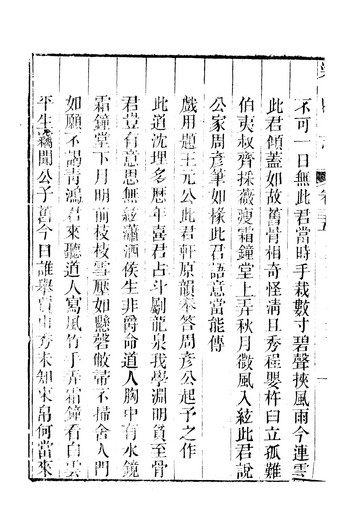 不可一日無此君當時手栽數寸碧聲挾風雨今連雲
此君傾蓋如故舊骨相奇怪清且秀程嬰杵臼立孤難
伯夷叔齊採薇瘦霜鐘堂上弄秋月微風入絃此君說
公家周彥筆如椽此君語意當能傳
戲用題王元公此君軒原韻奉答周彥公起予之作
此道沈埋多歷年喜君占斗斸龍泉我學淵明貧至骨
君豈有意思無絃瀟洒侯生非爵命道人胸中有水鏡
霜鐘堂下月明前枝枝雪壓如懸磬敝帚不掃舍人門
如願不謁青鴻君來聽道人寫風竹手弄霜鐘看白雲
平生竊聞公子舊今日誰舉賈生秀未知束帛何當來